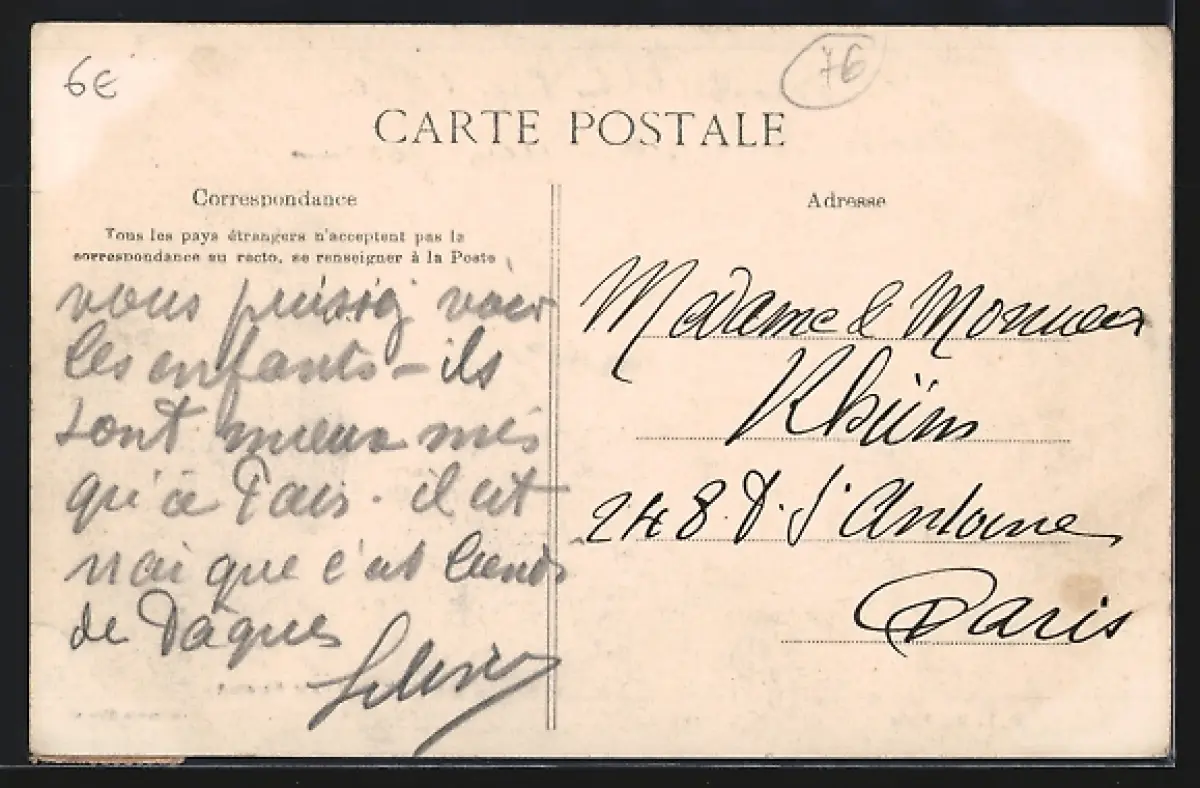 6€
76
CARTE POSTALE
Correspondance
Tous les pays étrangers n'acceptent pas la
correspondance au recto, se renseigner à la Poste
vous voir
les enfants - ils
sont mieux mis
qu'à Paris. il est
vrai que c'est
de Pâques
Adresse
Madame & Monsieur
248 S. Antoine
Paris